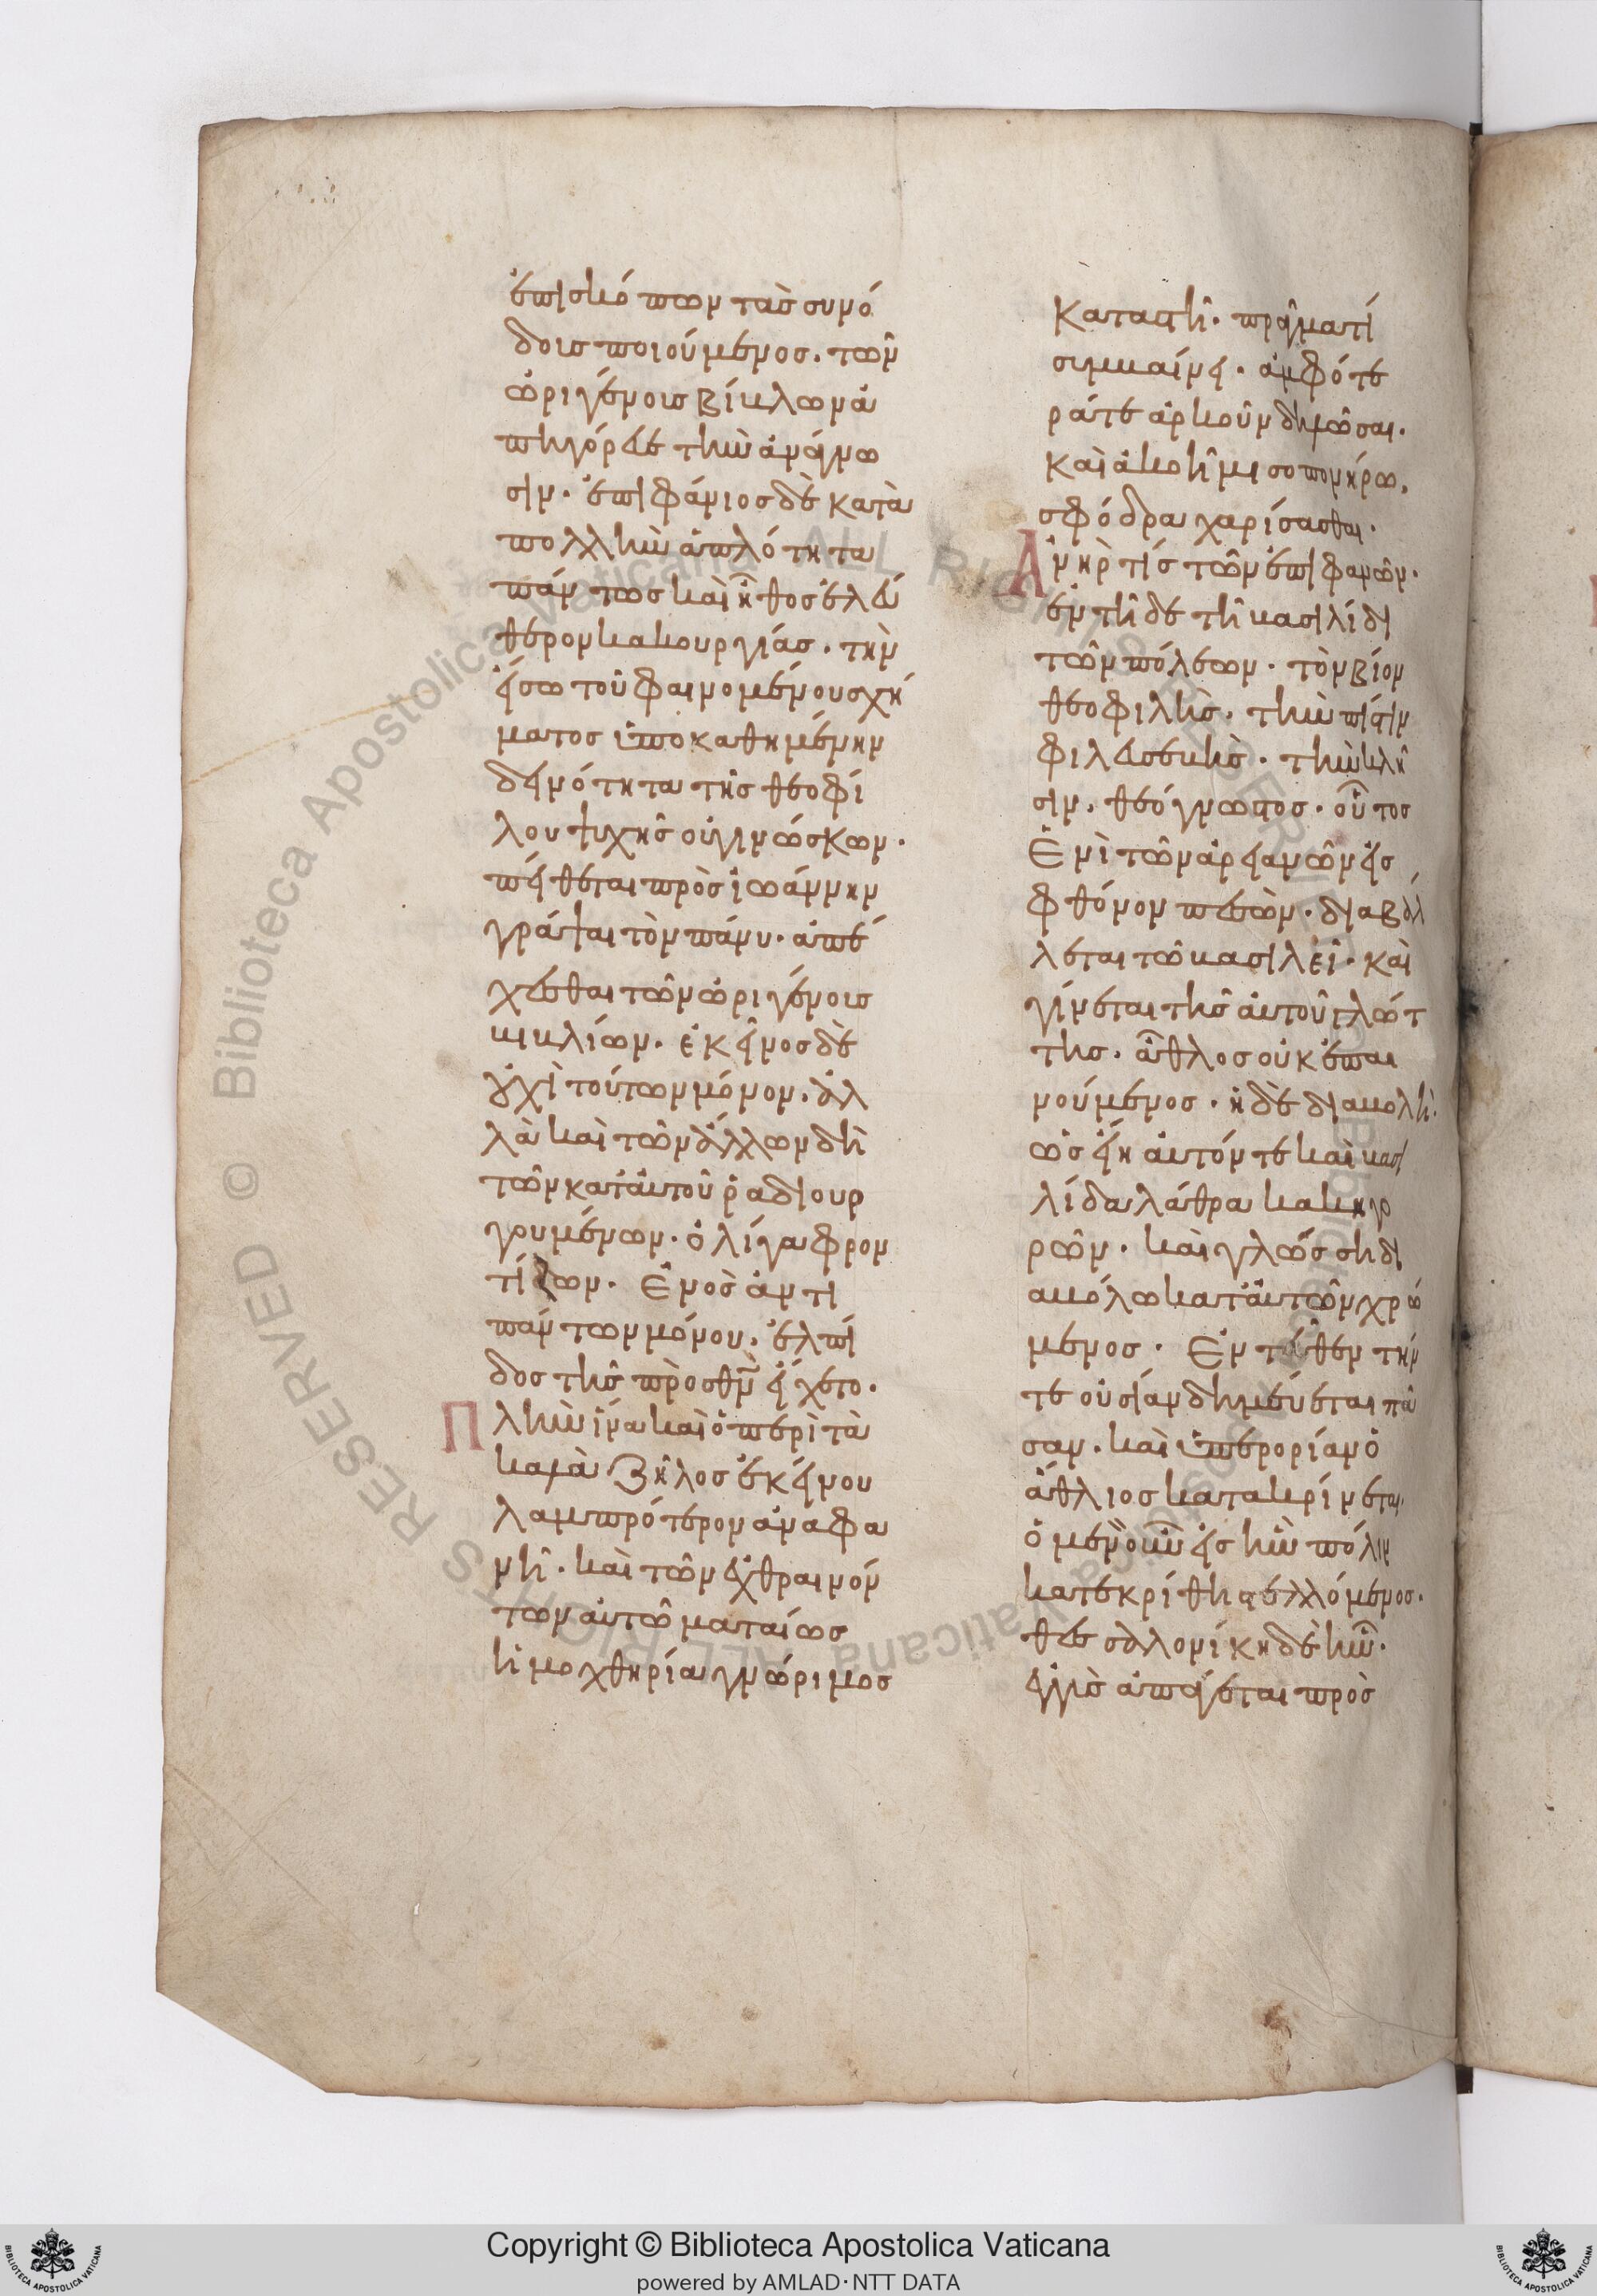 ἐπισκόπων τὰς συνό
δοις ποιούμενος. τῶν
ὠριγένοις βίβλων ἀ
πηγόρευε τὴν ἀνάγνω
σιν. ἐπιφάνιος δὲ κατὰ
πολλὴν ἁπλότητα
πάντως καὶ ἦθος ἐλεύ
θερον κακουργίας. τὴν
εἴσω τοῦ φαινομένου σχή
ματος ὑποκαθημένην
δεινότητα τῆς θεοφί
λου ψυχῆς οὐ γινώσκων.
πείθεται πρὸς ἰωάννην
γράψαι τὸν πάνυ. ἀπέ
χεσθαι τῶν ὠριγένοις
βιβλίων. ἐκεῖνος δὲ
οὐχὶ τούτων μόνον. ἀλ
λὰ καὶ τῶν ἄλλων δὴ
τῶν κατ' αὐτοῦ ῥαδιουρ
γουμένων. ὀλίγα φρον
τίζων. ἑνὸς ἀντὶ
πάντων μόνου. ἐλπί
δος τῆς πρὸς θν̄ εἴχετο.
Πλὴν ἵνα καὶ ὁ περὶ τὰ
καλὰ ζῆλος ἐκείνου
λαμπρότερον ἀναφα
νῆ. καὶ τῶν ἐχθραινόν
των αὐτῶ ματαίως
ἡ μοχθηρία γνώριμος
καταστῆ. πρᾶγμά τι
συμβαίνει. ἀμφότε
ρά τε ἀρκοῦν δηλῶσαι.
καὶ ἀκοῆ μισοπονήρω,
σφόδρα χαρίσασθαι.
Ἀνήρ τις τῶν ἐπιφανῶν.
ἐν τῆ δὲ τῆ βασιλίδι
τῶν πόλεων. τὸν βίον
θεοφιλὴς. τὴν πίστιν
φιλευσεβὴς. τὴν κλῆ
σιν, θεόγνωστος. οὗτος
ἑνὶ τῶν ἀρειανῶν εἰς
φθόνον πεσὼν. διαβάλ
λεται τῶ βασιλεῖ. καὶ
γίνεται τῆς αὐτοῦ γλώτ
της. ἆθλος οὐκ ἐπαι
νούμενος. ἡ δὲ διαβολὴ.
ὡς εἴη αὐτόν τε καὶ βασι
λίδα λάθρα κακηγο
ρῶν. καὶ γλώσση δι
αβόλω κατ' αὐτῶν χρώ
μενος. ἐντεῦθεν τήν
τε οὐσίαν δημεύεται πᾶ
σαν. καὶ ὑπερορίαν ὁ
ἄθλιος κατακρίνεται.
ὁ μὲν οὖν εἰς ἣν πόλιν
κατεκρίθη στελλόμενος.
θεσσαλονίκη δὲ ἦν.
ἐγγὺς ἀπάγεται πρὸς